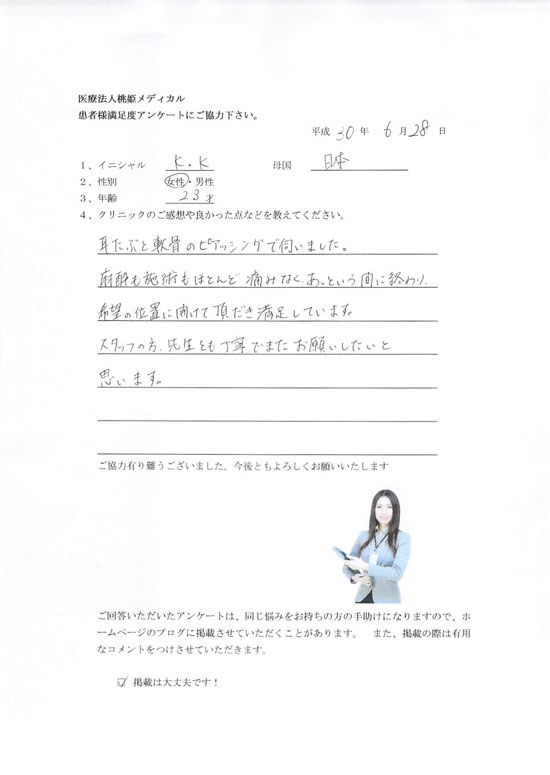 医療法人桃姫メディカル
患者様満足度アンケートにご協力下さい。
平成 30 年 6 月 28 日
1、イニシャル K.K 母国 日本
2、性別 女性・男性
3、年齢 23才
4、クリニックのご感想や良かった点などを教えてください。
耳たぶと軟骨のピアッシングで伺いました。
麻酔も施術もほとんど痛みなく、あっという間に終わり、
希望の位置に開けて頂だき満足しています。
スタッフの方、先生とも丁寧でまたお願いしたいと
思います。
ご協力有り難うございました。今後ともよろしくお願いいたします
ご回答いただいたアンケートは、同じ悩みをお持ちの方の手助けになりますので、ホ
ームページのブログに掲載させていただくことがあります。 また、掲載の際は有用
なコメントをつけさせていただきます。
☑ 掲載は大丈夫です!